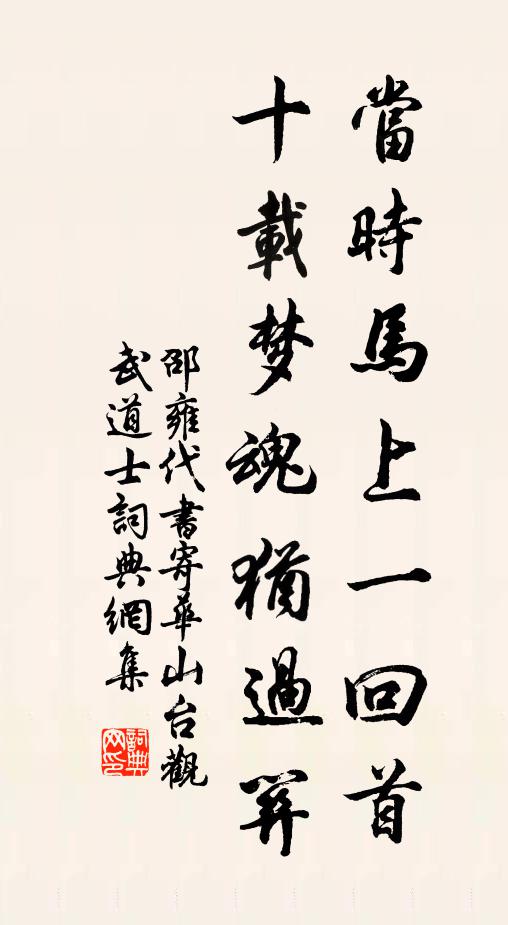 當時馬上一回首
十載梦魂猶過關
邵雍代書寄華山台觀
武道士詞典網集
詞典
网印